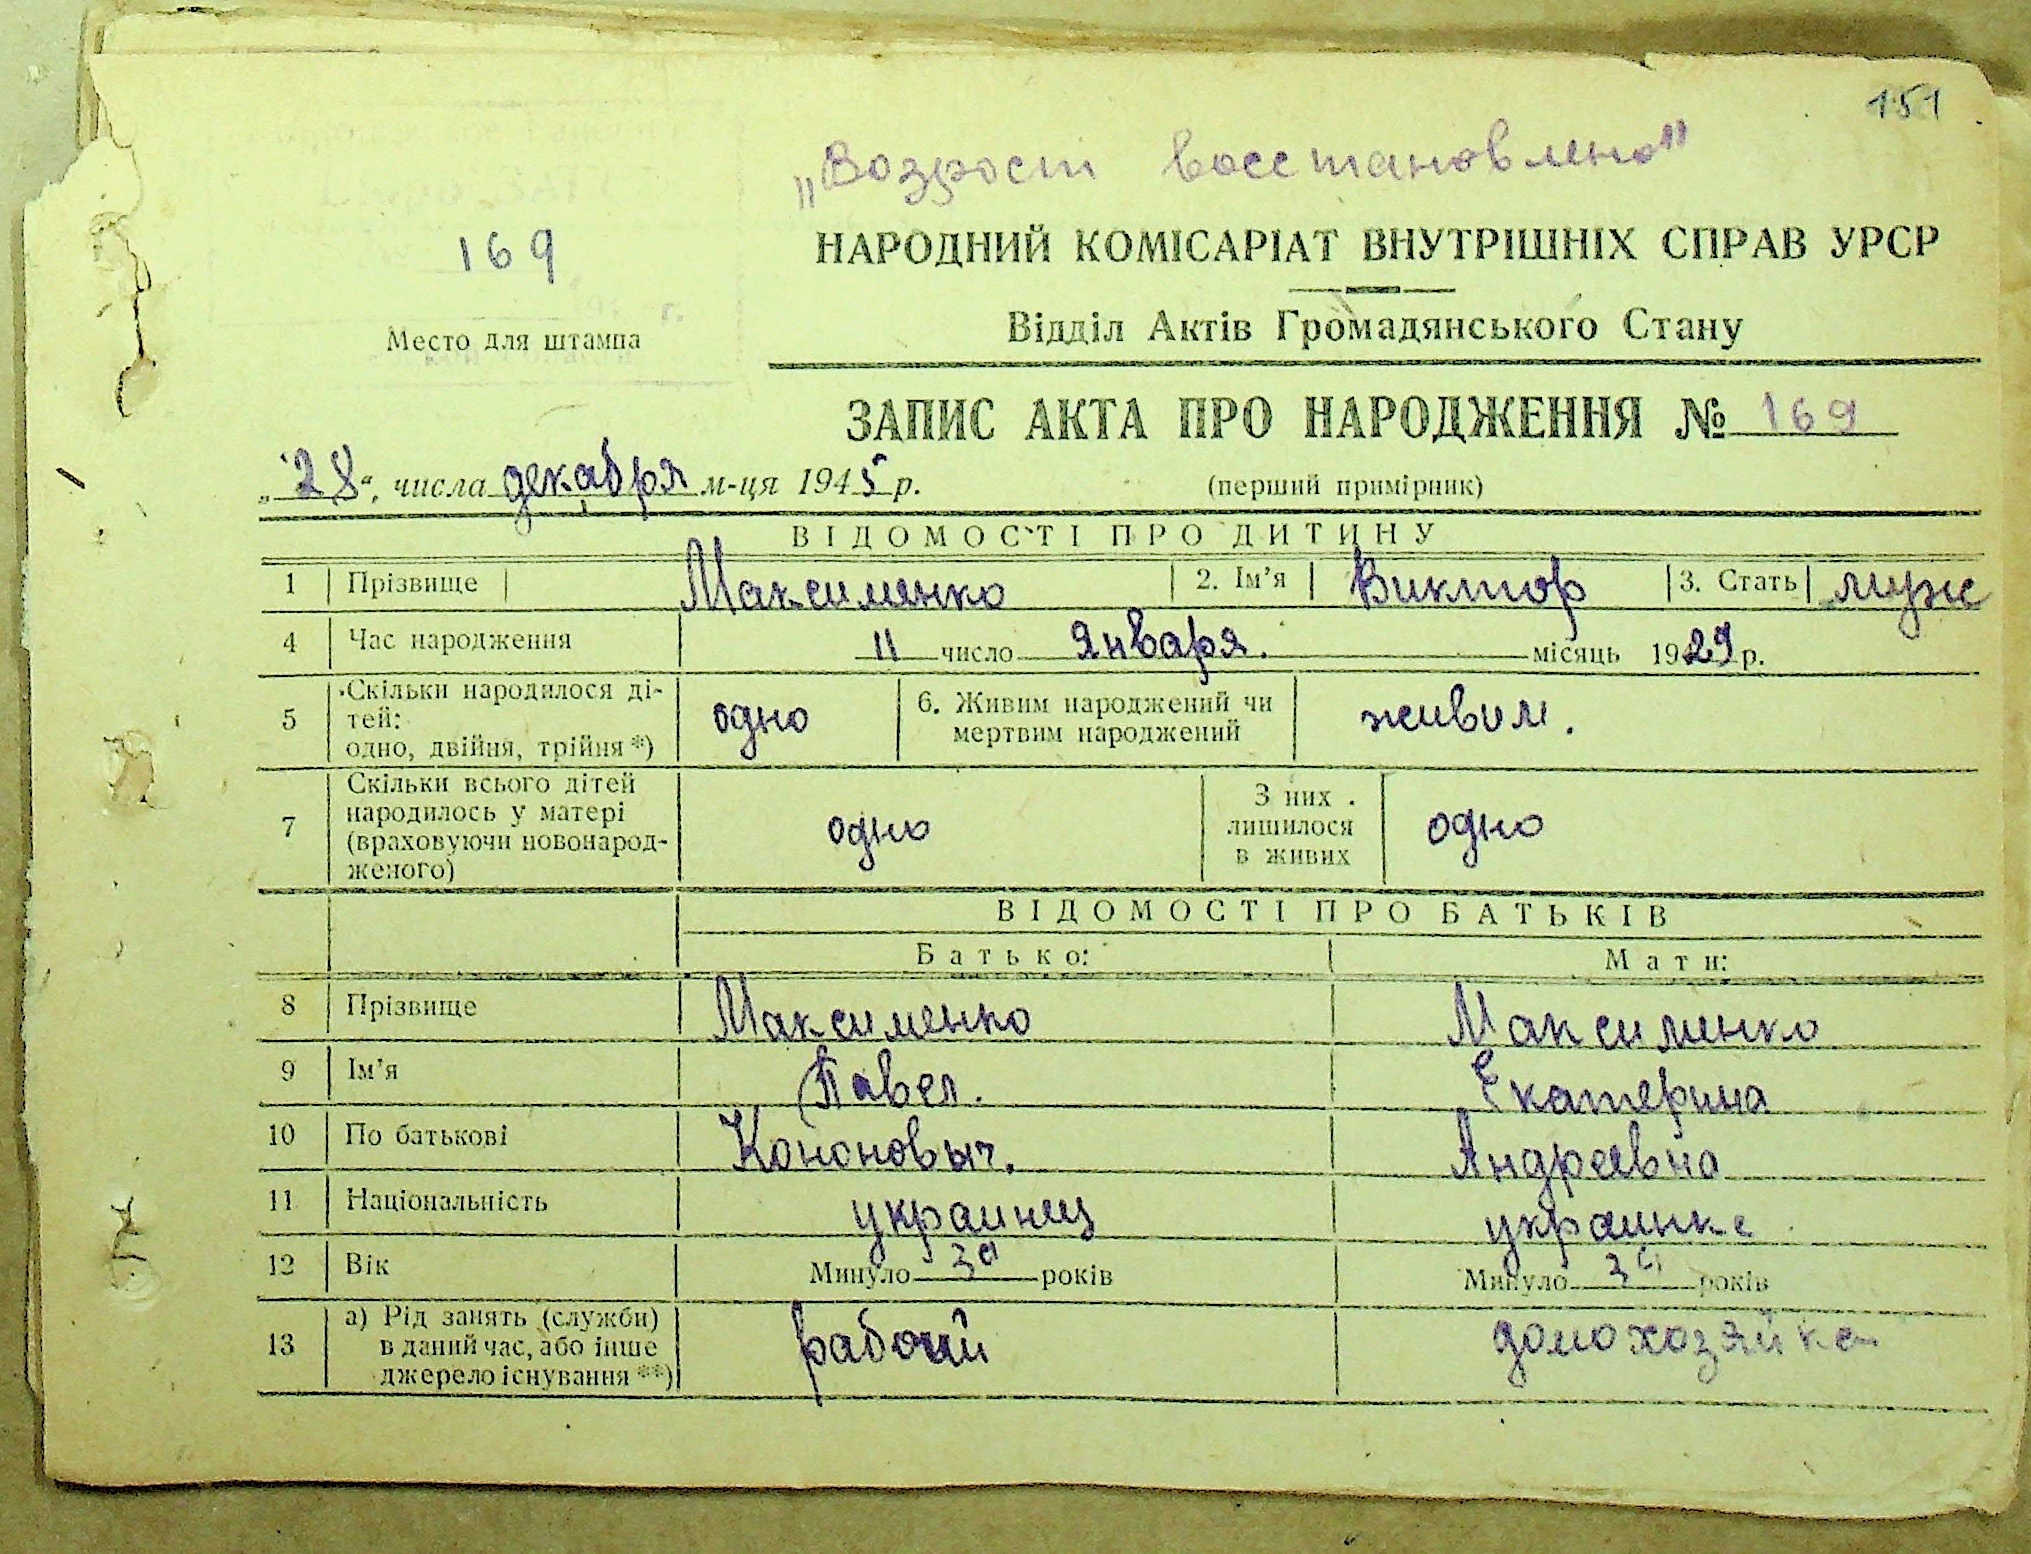 151
„Возраст восстановлено"
169
НАРОДНИЙ КОМІСАРІАТ ВНУТРІШНІХ СПРАВ УРСР
Відділ Актів Громадянського Стану
Место для штампа
ЗАПИС АКТА ПРО НАРОДЖЕННЯ № 169
„28“, числа декабря м-ця 1945 р. (перший примірник)
ВІДОМОСТІ ПРО ДИТИНУ
1 Прізвище Максименко 2. Ім'я Виктор 3. Стать муж
4 Час народження 11 число Января. місяць 1929 р.
5 Скільки народилося дітей: одно, двійня, трійня *) одно 6. Живим народжений чи мертвим народжений живим.
7 Скільки всього дітей народилось у матері (враховуючи новонародженого) одно З них лишилося в живих одно
ВІДОМОСТІ ПРО БАТЬКІВ
Батько: Мати:
8 Прізвище Максименко Максименко
9 Ім'я Павел. Екатерина
10 По батькові Кононовыч. Андреевна
11 Національність украинец украинке
12 Вік Минуло років Минуло років
13 а) Рід занять (служби) в даний час, або інше джерело існування **) рабочий домохозяйка